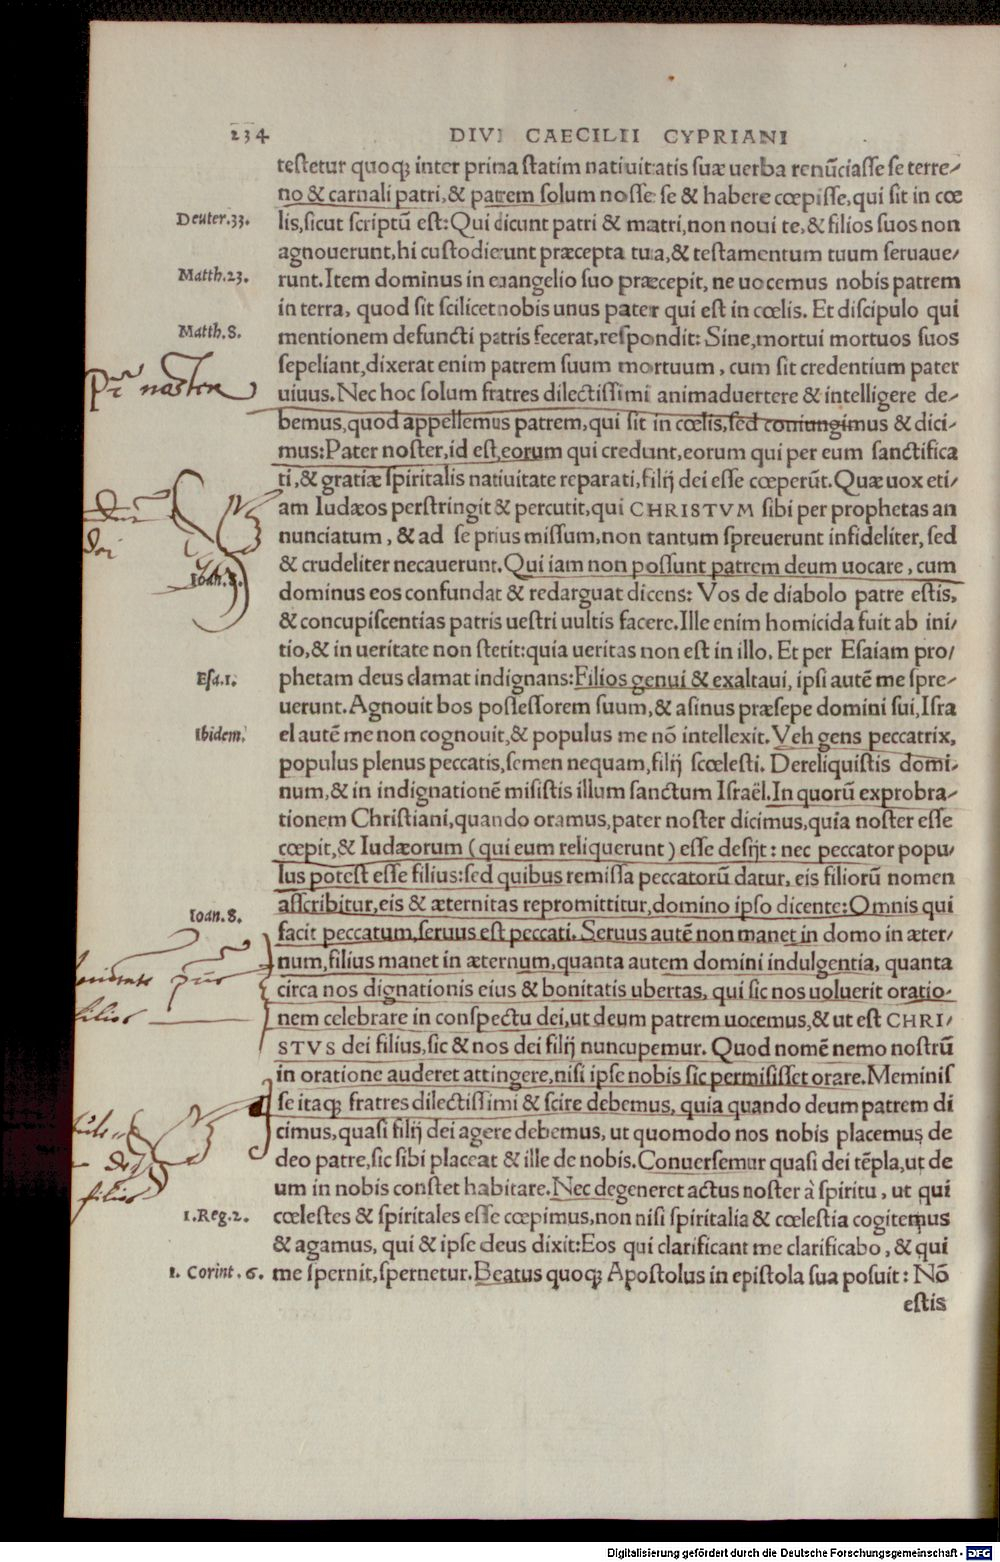 234
DIVI CAECILII CYPRIANI
testetur quoq; inter prima statim natiuitatis suæ uerba renūciasse se terre-
no & carnali patri, & patrem solum nosse se & habere cœpisse, qui sit in cœ
Deuter.33.
lis, sicut scriptū est: Qui dicunt patri & matri, non noui te, & filios suos non
agnouerunt, hi custodierunt præcepta tua, & testamentum tuum seruaue-
Matth.23.
runt. Item dominus in euangelio suo præcepit, ne uocemus nobis patrem
in terra, quod sit scilicet nobis unus pater qui est in cœlis. Et discipulo qui
Matth.8.
mentionem defuncti patris fecerat, respondit: Sine, mortui mortuos suos
sepeliant, dixerat enim patrem suum mortuum, cum sit credentium pater
noster
uiuus. Nec hoc solum fratres dilectissimi animaduertere & intelligere de-
bemus, quod appellemus patrem, qui sit in cœlis, sed coniungimus & dici-
mus: Pater noster, id est, eorum qui credunt, eorum qui per eum sanctifica
ti, & gratiæ spiritalis natiuitate reparati, filij dei esse cœperūt. Quæ uox eti-
am Iudæos perstringit & percutit, qui CHRISTVM sibi per prophetas an
nunciatum, & ad se prius missum, non tantum spreuerunt infideliter, sed
Ioan.8.
& crudeliter necauerunt. Qui iam non possunt patrem deum uocare, cum
dominus eos confundat & redarguat dicens: Vos de diabolo patre estis,
& concupiscentias patris uestri uultis facere. Ille enim homicida fuit ab ini-
tio, & in ueritate non stetit: quia ueritas non est in illo. Et per Esaiam pro-
Esa.1.
phetam deus clamat indignans: Filios genui & exaltaui, ipsi autē me spre-
uerunt. Agnouit bos possessorem suum, & asinus præsepe domini sui, Isra
Ibidem.
el autē me non cognouit, & populus me nō intellexit. Veh gens peccatrix,
populus plenus peccatis, semen nequam, filij scœlesti. Dereliquistis domi-
num, & in indignationē misistis illum sanctum Israël. In quorū exprobra-
tionem Christiani, quando oramus, pater noster dicimus, quia noster esse
cœpit, & Iudæorum (qui eum reliquerunt) esse desijt: nec peccator popu-
lus potest esse filius: sed quibus remissa peccatorū datur, eis filiorū nomen
asscribitur, eis & æternitas repromittitur, domino ipso dicente: Omnis qui
Ioan.8.
facit peccatum, seruus est peccati. Seruus autē non manet in domo in æter-
num, filius manet in æternum, quanta autem domini indulgentia, quanta
circa nos dignationis eius & bonitatis ubertas, qui sic nos uoluerit oratio-
nem celebrare in conspectu dei, ut deum patrem uocemus, & ut est CHRI-
STVS dei filius, sic & nos dei filij nuncupemur. Quod nomē nemo nostrū
in oratione auderet attingere, nisi ipse nobis sic permisisset orare. Meminis
se itaq; fratres dilectissimi & scire debemus, quia quando deum patrem di
cimus, quasi filij dei agere debemus, ut quomodo nos nobis placemus de
deo patre, sic sibi placeat & ille de nobis. Conuersemur quasi dei tēpla, ut de
um in nobis constet habitare. Nec degeneret actus noster à spiritu, ut qui
1.Reg.2.
cœlestes & spiritales esse cœpimus, non nisi spiritalia & cœlestia cogitemus
& agamus, qui & ipse deus dixit: Eos qui clarificant me clarificabo, & qui
1. Corint. 6.
me spernit, spernetur. Beatus quoq; Apostolus in epistola sua posuit: Nō
estis
Digitalisierung gefördert durch die Deutsche Forschungsgemeinschaft - DFG